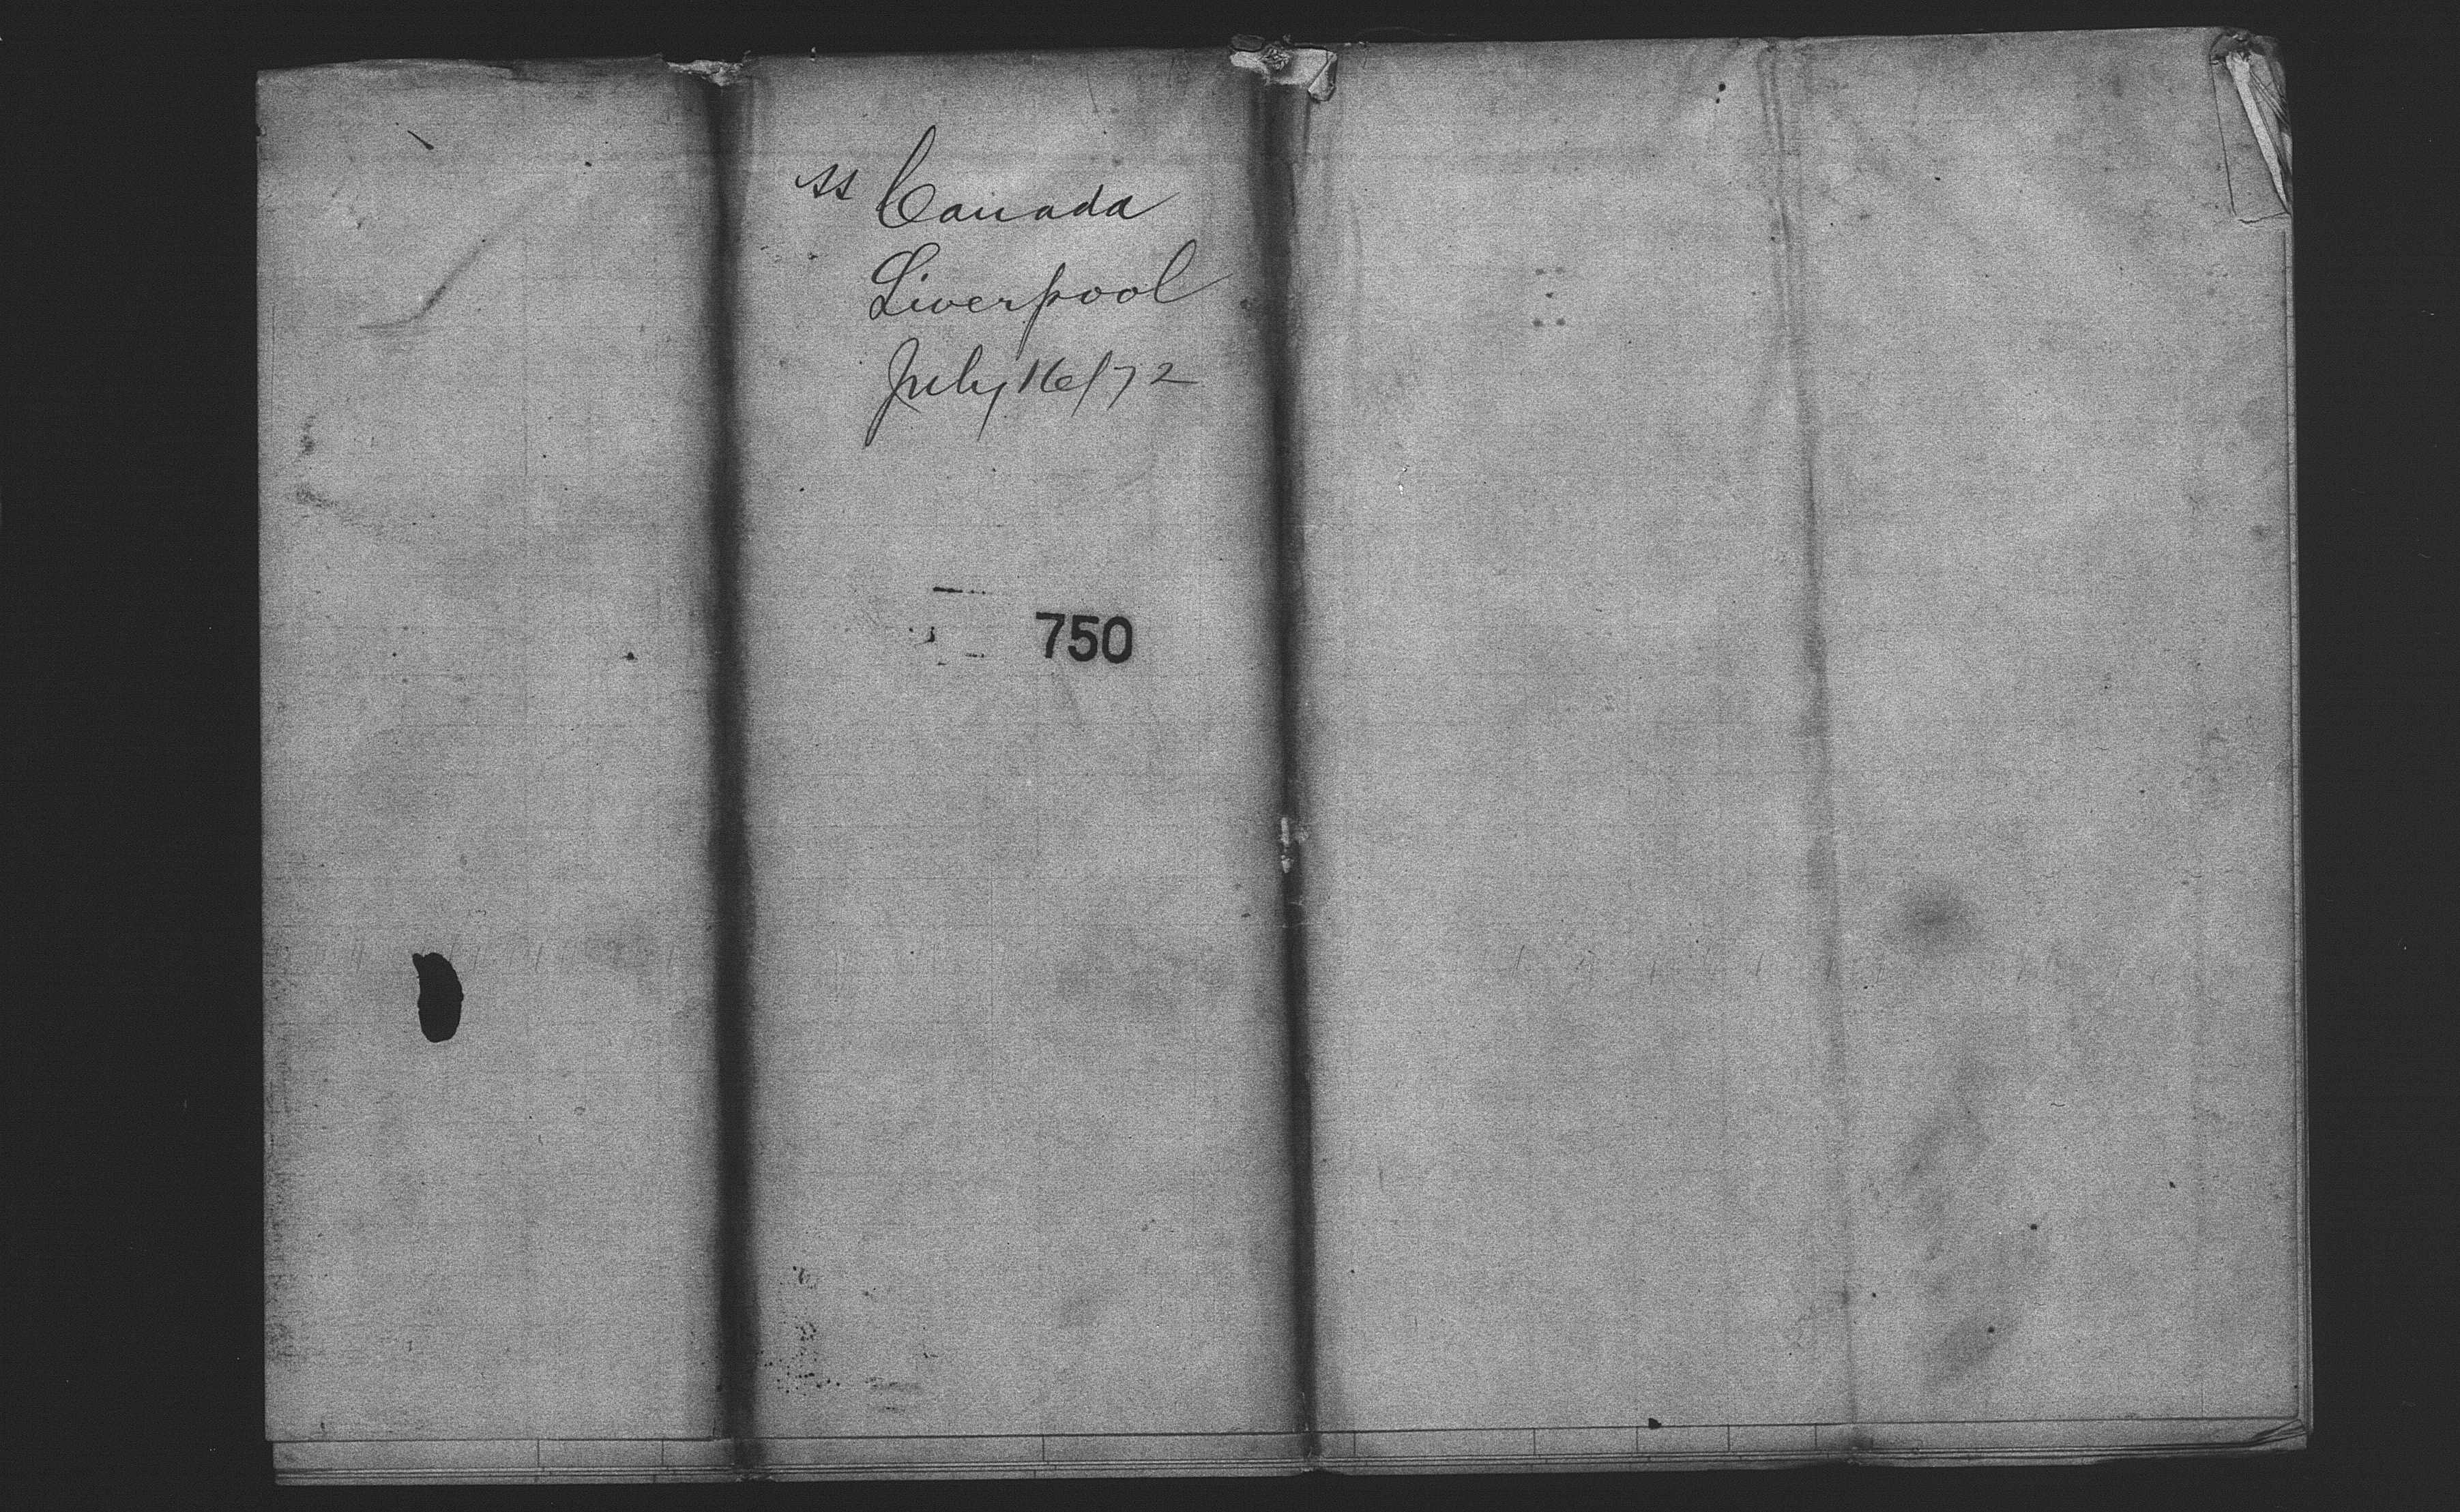 ss Canada
Liverpool
July 16/72
750